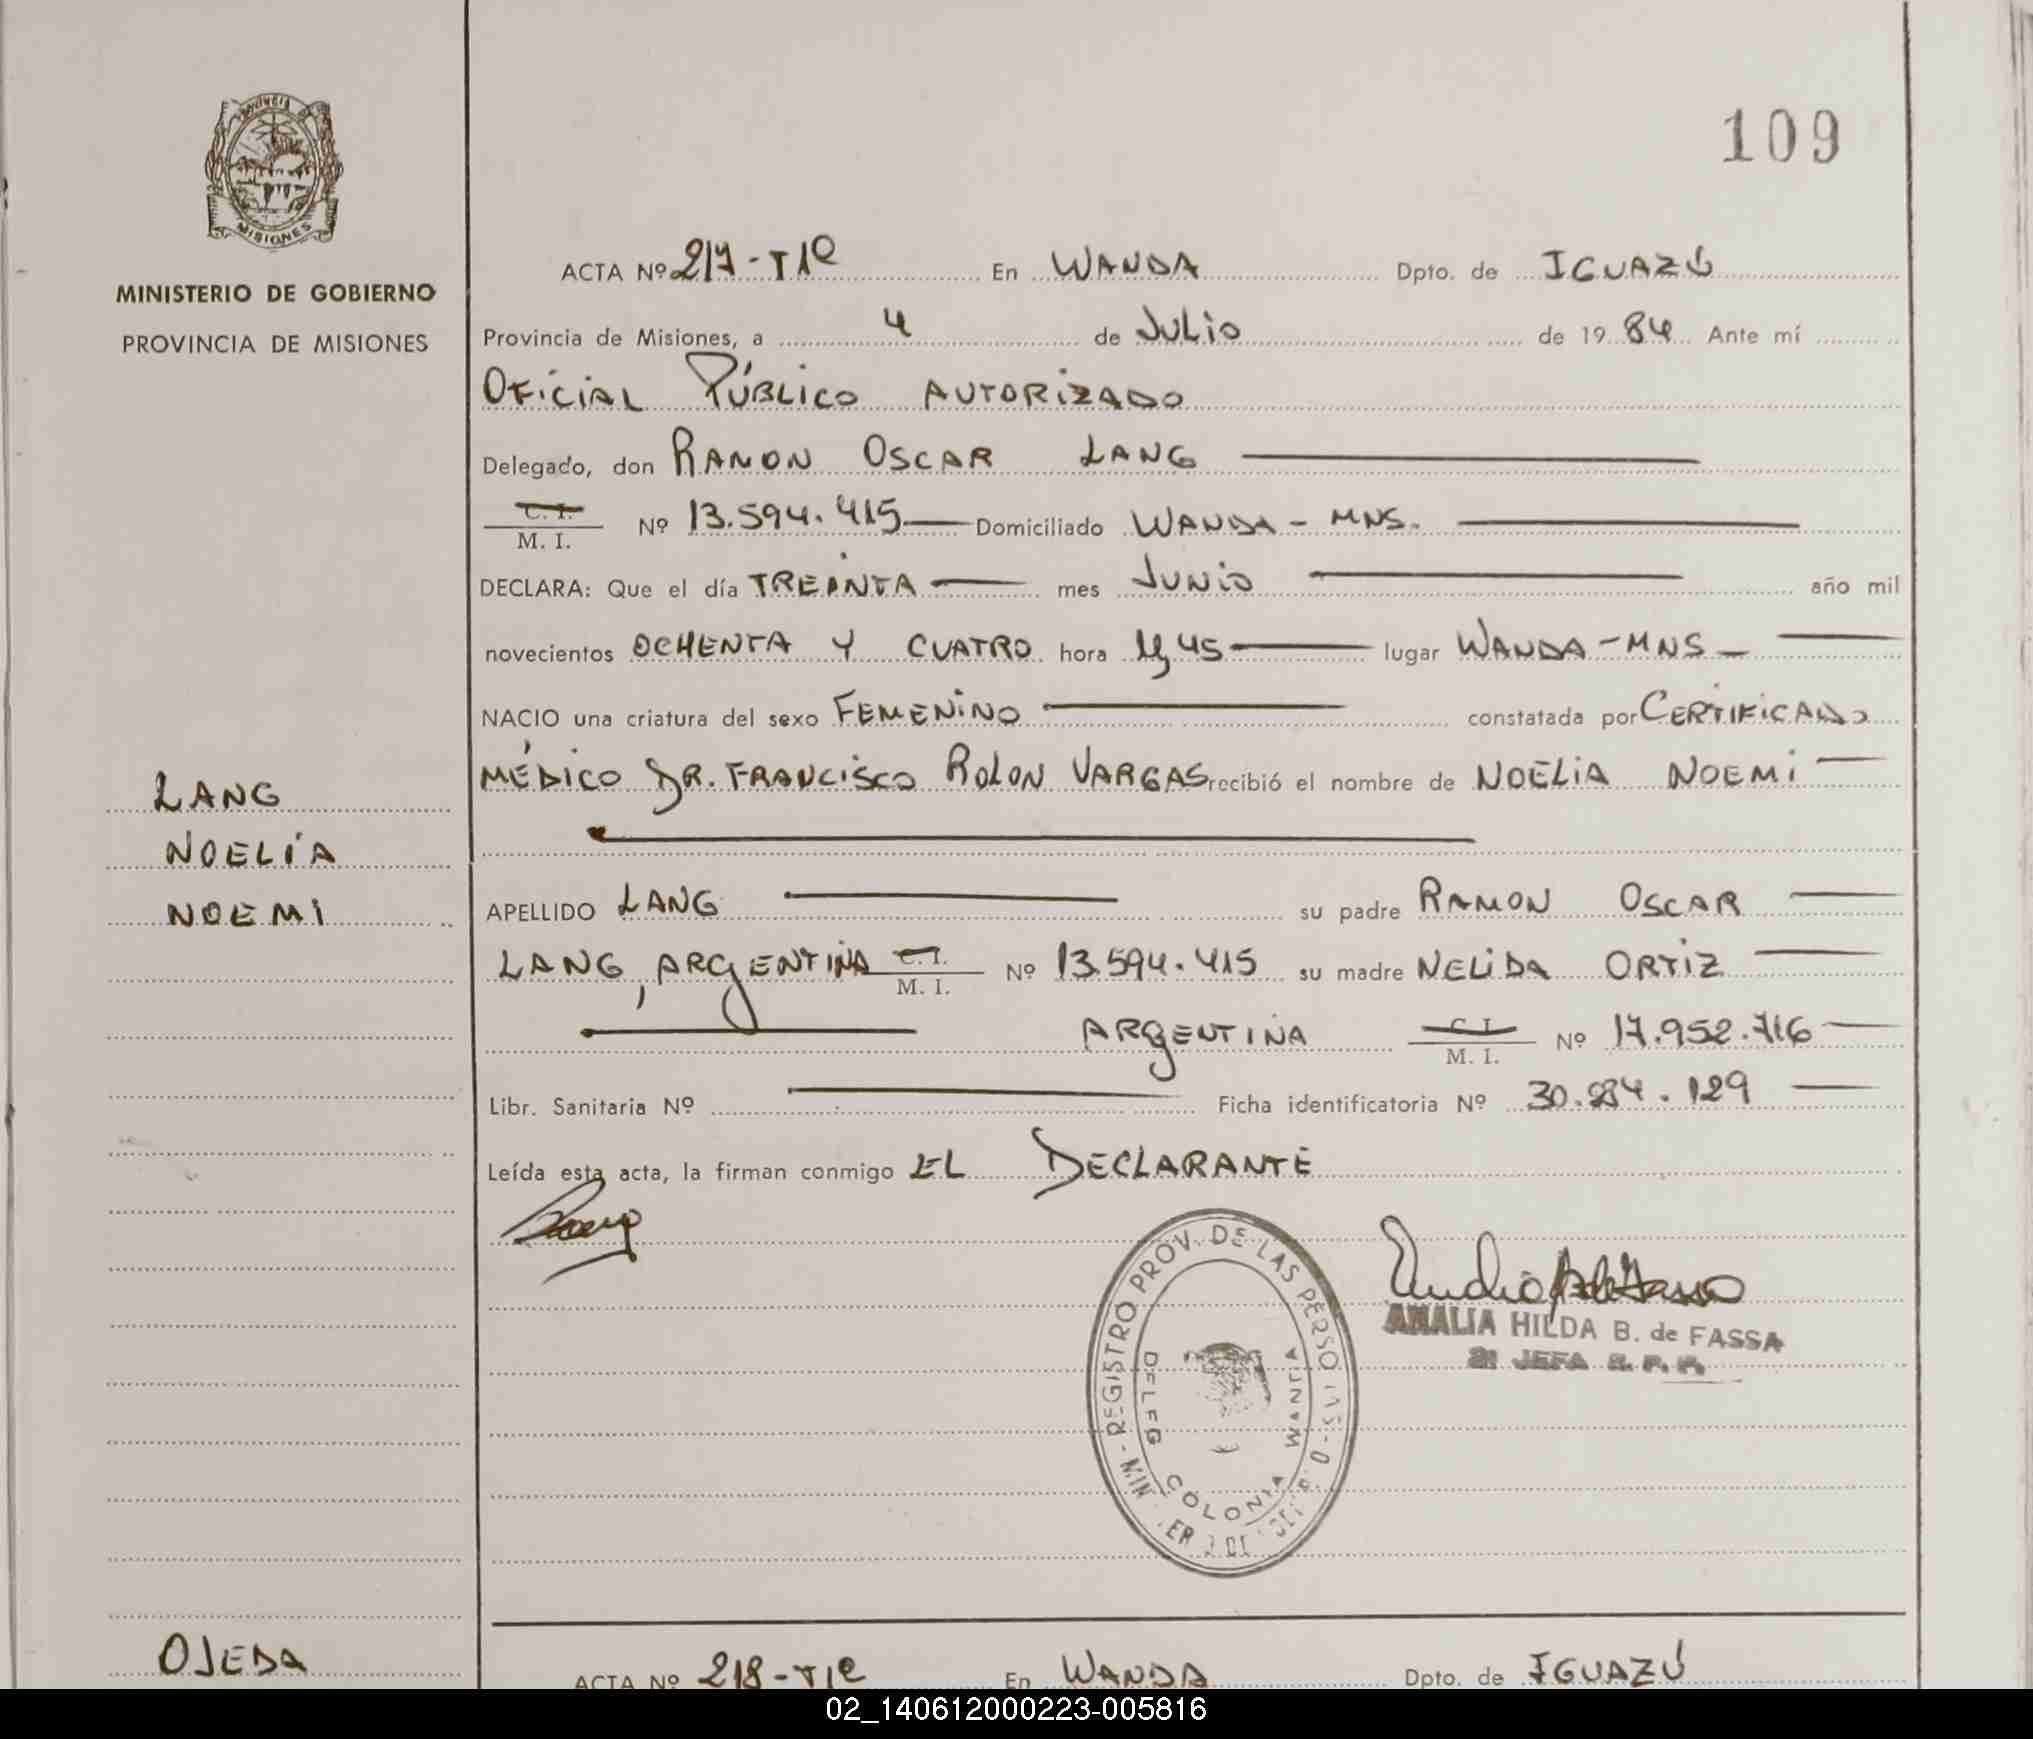 109
PROVINCIA DE
MISIONES
MINISTERIO DE GOBIERNO
PROVINCIA DE MISIONES
ACTA Nº 217-T1º En WANDA Dpto. de IGUAZÚ
Provincia de Misiones, a 4 de JULIO de 19 84 Ante mí
OFICIAL PÚBLICO AUTORIZADO
Delegado, don RAMON OSCAR LANG
C. I.
M. I. Nº 13.594.415 Domiciliado WANDA - MNS.
DECLARA: Que el día TREINTA mes JUNIO año mil
novecientos OCHENTA Y CUATRO hora 45 lugar WANDA-MNS
NACIO una criatura del sexo FEMENINO constatada por CERTIFICADO
MÉDICO DR. FRANCISCO ROLON VARGAS recibió el nombre de NOELIA NOEMI
LANG
NOELIA
NOEMI
APELLIDO LANG su padre RAMON OSCAR
LANG, ARGENTINA C. I.
M. I. Nº 13.594.415 su madre NELIDA ORTIZ
ARGENTINA C. I.
M. I. Nº 17.952.716
Libr. Sanitaria Nº Ficha identificatoria Nº 30.284.129
Leída esta acta, la firman conmigo EL DECLARANTE
REGISTRO PROV. DE LAS PERSONAS
DELEG. COLONIA WANDA
AMALIA HILDA B. de FASSA
2ª JEFA R. P. P.
OJEDA
ACTA Nº 218-T1º En WANDA Dpto. de IGUAZÚ
02_140612000223-005816